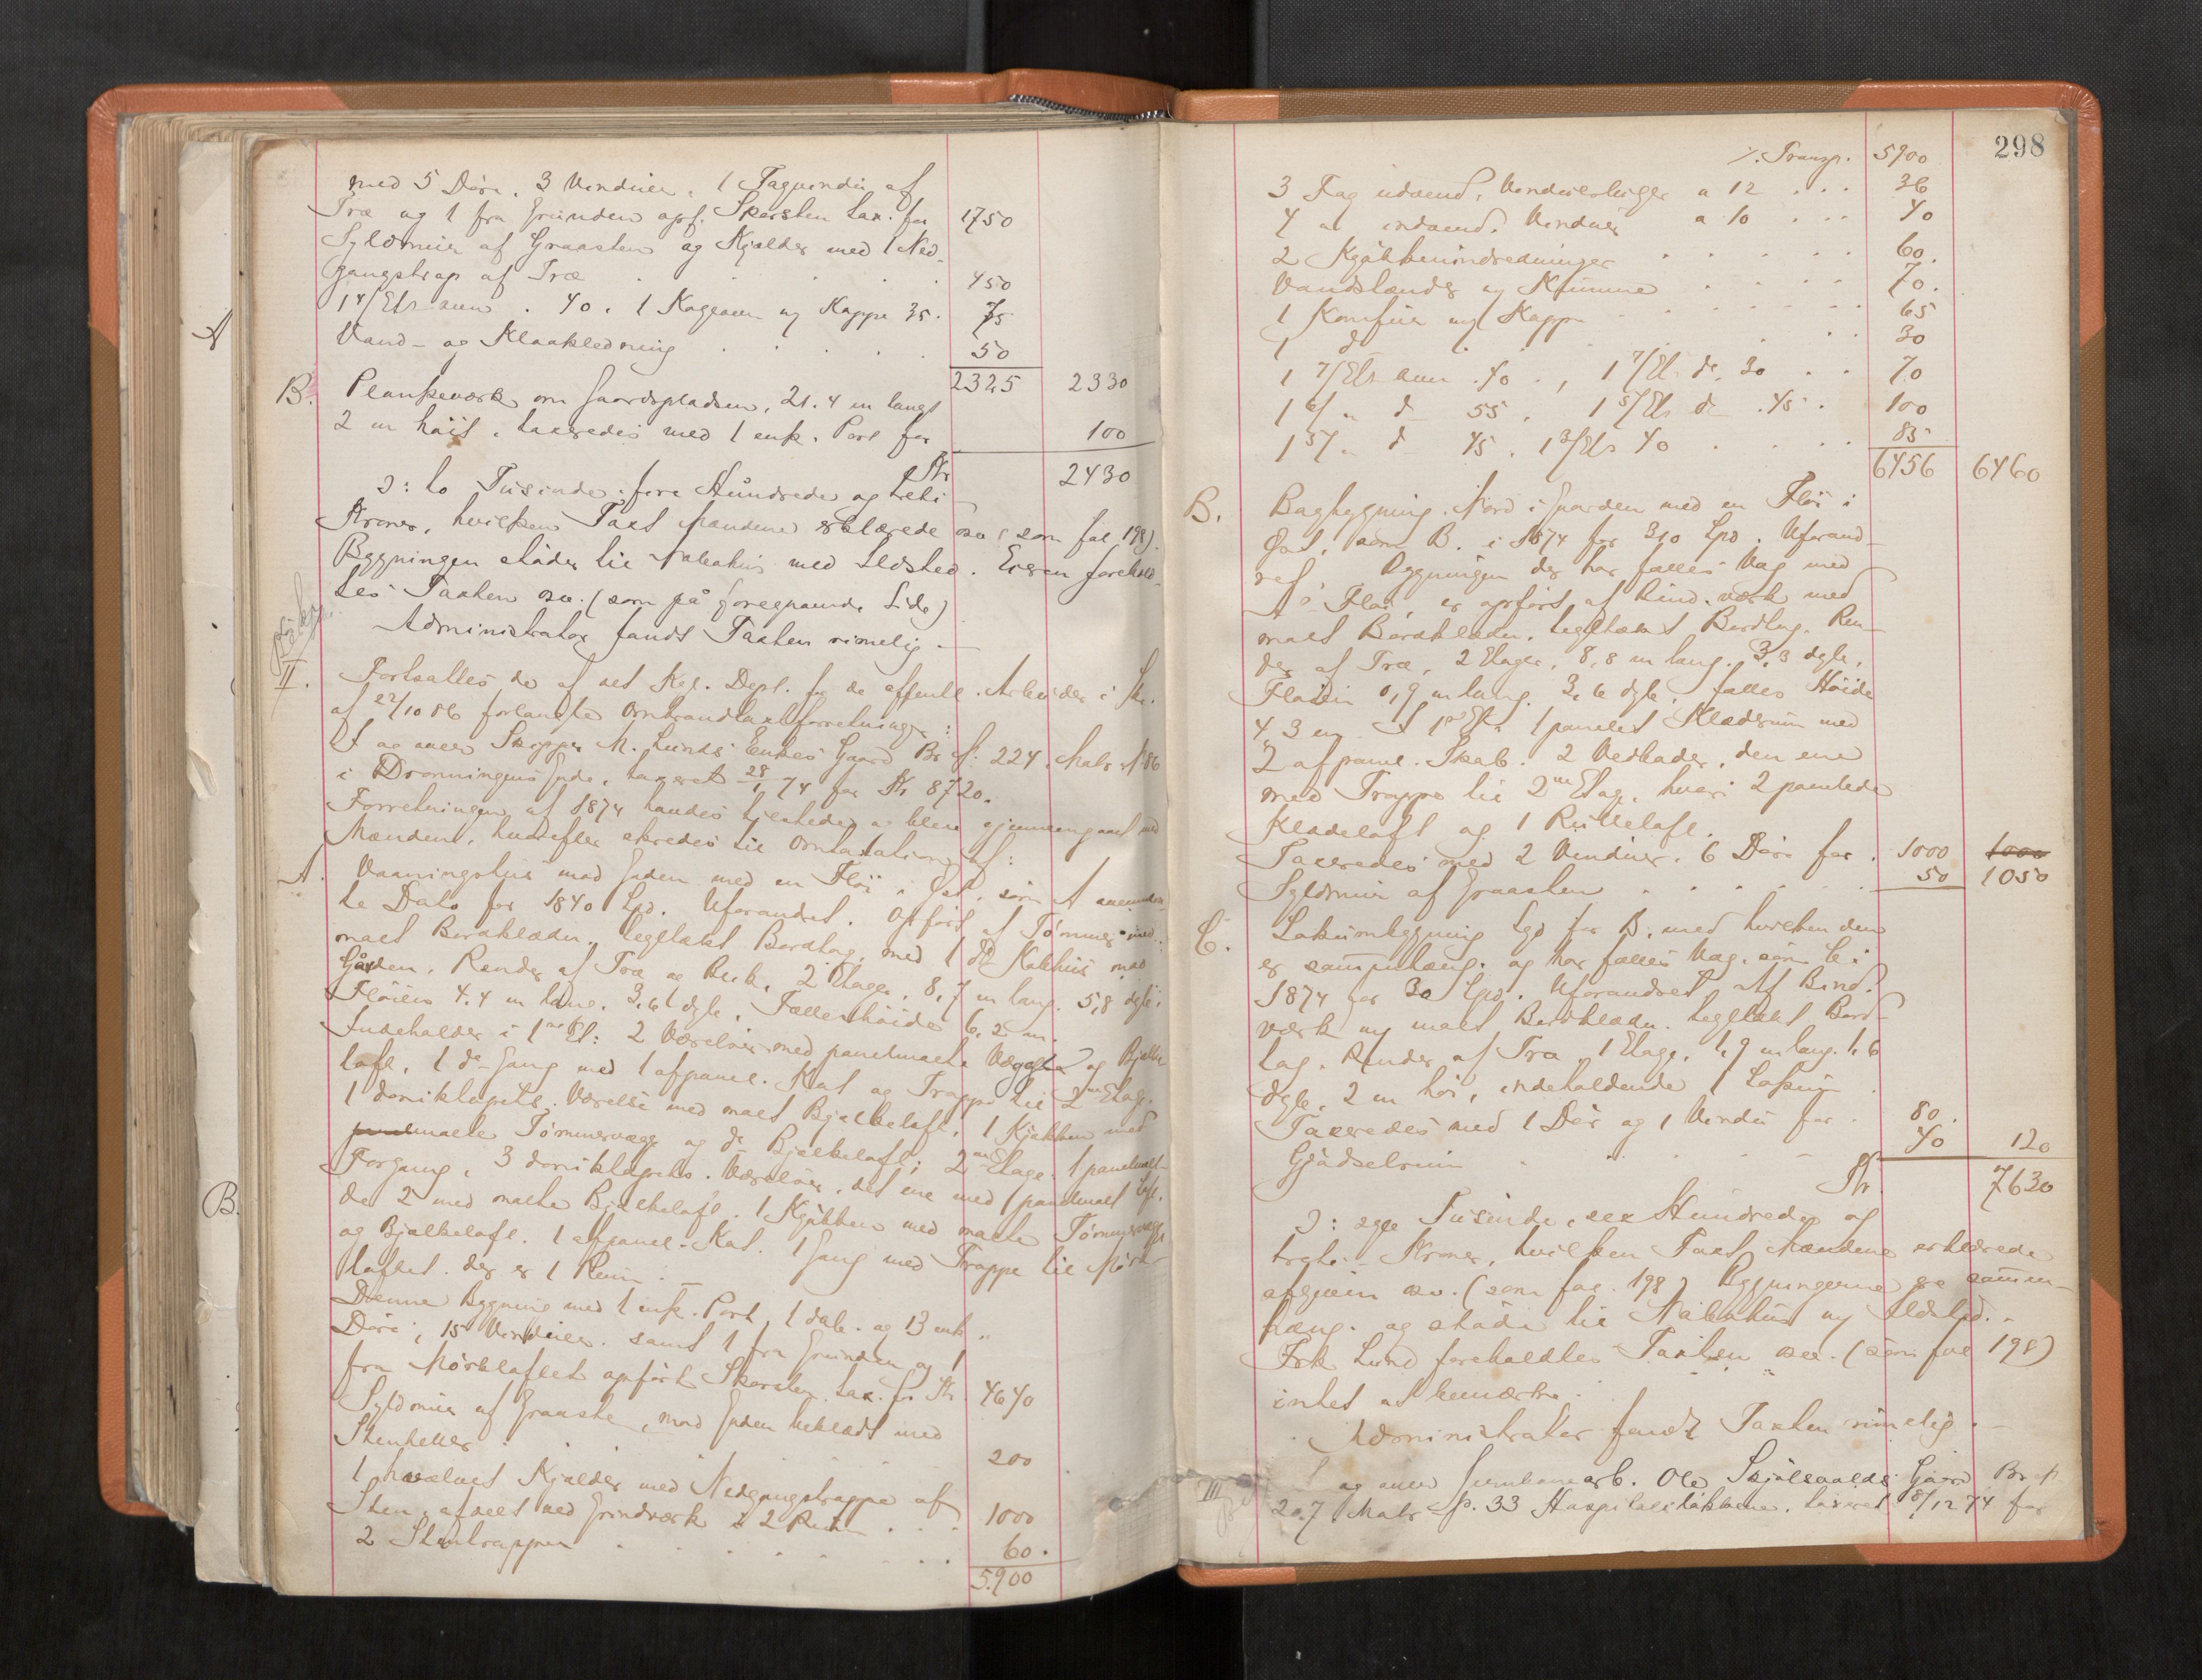 med 5 Döre, 3 Vinduer, 1 Tagvindu af
Træ og 1 fra Grunden opf. Skorsten tax. for 1750
Syldmur af Graasten og Kjælder med 1 Ned-
gangstrap af Træ . . . . 450
1 4/Etr. aven . 40. 1 Kogeovn og Kappe 35. 75
Vand- og Kloakledning . . . . . 50
2325 2330
B. Plankeværk om Gaardspladsen, 21.4 m langt
2 m höit, taxeredes med 1 enk. Port for 100
Kr 2430
ɔ: to Tusinde fire Hundrede og treti
Kroner, hvilken Taxt Mændene erklærede osv (som fol 198).
Bygningen stöder til Nabohus med Ildsted. Eieren forehold-
tes Taxten osv. (som på foregaaende Side)
Administrator fandt Taxten rimelig.—
II. Fortsattes de af det Kgl. Dept. for de offentl. Arbeider i Skr.
af 22/10 86 forlangte Ombrandtaxtforretninger:
I og over Skipper M. Lunds Enkes Gaard Br. N: 224, Matr. N: 86
i Dronningens Gade, taxeret 28/1 74 for Kr 8720.
Forretningen af 1874 havdes tilstede og blev gjennemgaaet med
Mændene, hvorefter skredes til Omtaxation af:
A. Vaaningshus mod Gaden med en Flöi i Öst, som A
te Dato for 1840 Spd. Uforandret. Opfört af Tömmer med
malt Bordklædn. tegltækt Bordtag, med 1 do Kakhus mod
Gården. Render af Træ og Blik, 2 Etager, 8,7 m lang. 5,8 dyb,
Flöien 4.4 m lang. 3,6 dyb, Fælles höide 6,2 m.
Indeholder i 1ste Et: 2 Værelser med panelmalte Vægge og Bjælke
loft, 1 do Gang med 1 afpanel. Kot og Trappe til 2den Etage.
1 domiktapets. Værelse med malt Bjælkeloft, 1 Kjökken med
malte Tömmervægge og do Bjælkeloft; 2den Etage. 1 panelmalt
Forgang, 3 domiktapets. Værelser, det ene med panelmalt Loft,
de 2 med malte Bjælkeloft. 1 Kjökken med malte Tömmervægge
og Bjælkeloft. 1 afpanel. Kot. 1 Gang med Trappe til Mörk-
loftet. der er 1 Rum.—
Denne Bygning med 1 enk. Port, 1 dob. og 13 enk.
Döre, 15 Vinduer samt 1 fra Grunden og 1
fra Mörkloftet opfört Skorsten tax. for Kr. 4640
Syldmur af Graaste, mod Gaden beklædt med
Stenheller . . . . . 200
1 hvælvet Kjælder med Nedgangstrappe af
Sten, afdelt ved Grindværk i 2 Rum . . . 1000
2 Stentrapper . . . . . . . 60.
5.900
298
./. Transp. 5900
3 Fag udvend. Vinduesluger a 12 . . . 36
4 " indvend. Vinduer a 10 . . . 40
2 Kjökkenindredninger . . . . . 60.
Vandstænder og Kumme . . . . 70.
1 Komfur og Kappe . . . . . 65
1 do . . . . . 30
1 7/Etr. ovn .40 . , 1 7/Et. do. 30 . . 70
1 6/ " do 55 , 1 5/Etr do .45 . 100
1 5/ " d 45 , 1 3/Etr 40 . . . . 85
6456 6460
B. Bagbygning Nord i Gaarden med en Flöi i
Öst, som B. i 1874 for 310 Spd. Uforand-
ret. Bygningen der har fælles Væg med
A's Flöi, er opfört af Bind.værk med
malt Bordklædn. tegltækt Bordtag. Ren-
der af Træ, 2 Etager, 8,8 m lang. 3,3 dyb,
Flöien 0,9 m lang. 3,6 dyb, fælles Höide
4,3 m. I 1ste Et. 1 panelet Klæderum med
2 afpanel. Skab. 2 Vedboder, den ene
med Trappe til 2den Etag, hvori 2 panelede
Klædeloft og 1 Rulleloft.
Taxeredes med 2 Vinduer. 6 Döre for . 1000 1000
Syldmur af Graasten . . . . . . 50 1050
C. Lokumbygning Syd for B. med hvilken den
er sammenhæng. og har fælles Væg. som C i
1874 for 30 Spd. Uforandret. Af Bind.
værk og malt Bordklædn. tegltækt Bord-
tag. Render af Træ, 1 Etage, 1,9 m lang. 1,6
dyb. 2 m höi, indeholdende 1 Lokum
Taxeredes med 1 Dör og 1 Vindu for . 80.
Gjödselrum . . . . . 40 120
Kr. 7630
ɔ: syv Tusinde, sex Hundrede og
tredi- Kroner, hvilken Taxt Mændene erklærede
afgiven osv. (som fol. 198) Bygningerne ere sammen-
hæng. og stöde til Nabohus og Ildsted.
Frk Lund foreholdtes Taxten osv. (som fol 198)
intet at bemærke.
Administrator fandt Taxten rimelig.—
III I og over Jernbanearb. Ole Skjölsvolds Gård Br N
207 Matr N. 33 Hospitalslökkene, taxeret 8/12 74 for
A
B.